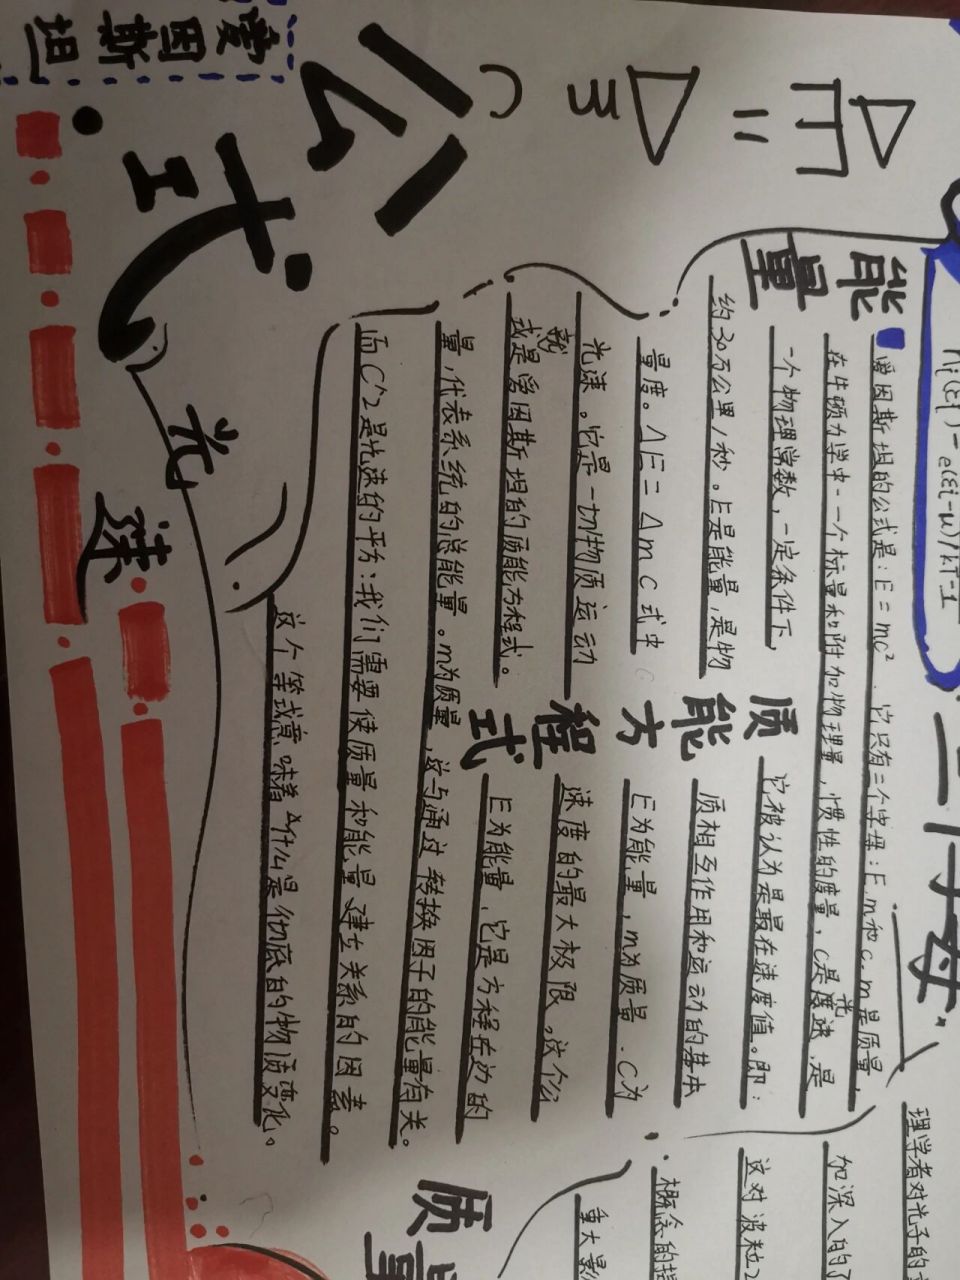 爱因
斯坦
公式
△E=△mc
n₁(ε)=
e(εi-u)/kT-1
能量
爱因斯坦的公式是:E=mc².它只有三个字母:E.m和c.m是质量,
在牛顿力学中一个标量和附加物理量,惯性的度量,c是光速,是
一个物理常数,一定条件下,
约30万公里/秒。E是能量,是物
量度。△E=△mc式中
光速。它是一切物质运动
就
或是爱因斯坦的质能方程式。
质能方程式
它被认为是最在速度值。即:
质相互作用和运动的基本
E为能量,m为质量.C为
速度的最大极限。这个公
E为能量,它是方程左边的
量,代表系统的总能量。m为质量,这与通过转换因子的能量有关。
而C^2是光速的平方:我们需要使质量和能量建立关系的因素。
这个等式意味着什么是彻底的物质变化。
光速
质量
理学者对光子的
加深入的了
这对波粒2
概念的提
重大影